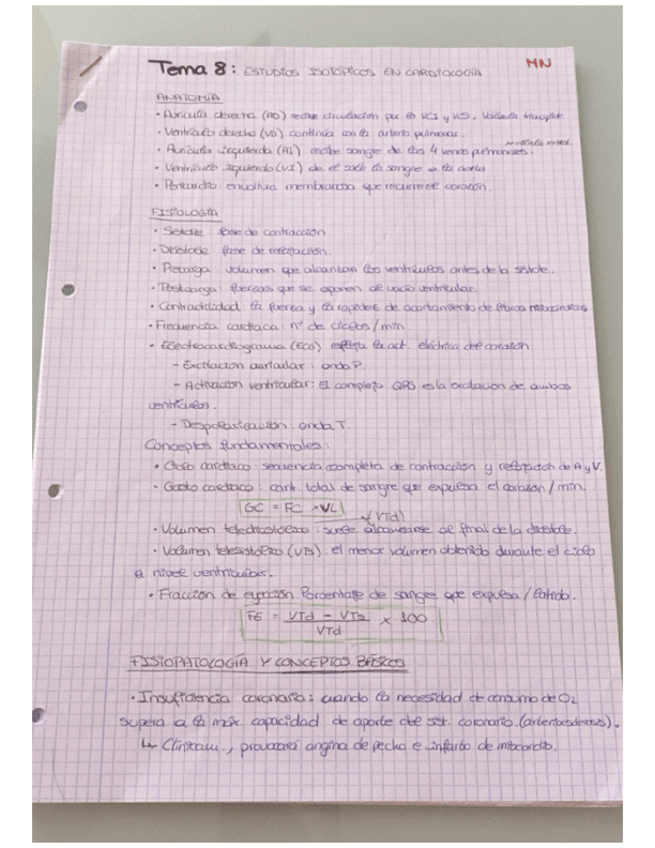 MN
Tema 8: ESTUDIOS ISOTÓPICOS EN CARDIOLOGÍA
ANATOMÍA
· Aurícula derecha (AD) recibe circulación por la VCI y VCS. Válvula tricúspide.
· Ventrículo derecho (VD) continúa con la arteria pulmonar.
· Aurícula izquierda (AI) recibe sangre de las 4 venas pulmonares. válvula mitral.
· Ventrículo izquierdo (VI) de él sale la sangre a la aorta
· Pericardio: envoltura membranosa que recubre el corazón.
FISIOLOGÍA
· Sístole: fase de contracción
· Diástole: fase de relajación.
· Precarga: volumen que alcanzan los ventrículos antes de la sístole.
· Postcarga: fuerzas que se oponen al vacio ventricular.
· Contractilidad: la fuerza y la rapidez de acortamiento de fibras miocárdicas
· Frecuencia cardiaca: nº de ciclos/min
· Electrocardiograma (ECG) refleja la act. eléctrica del corazón
- Excitación auricular: onda P.
- Activación ventricular: El complejo QRS es la excitación de ambos
ventrículos.
- Despolarización: onda T.
Conceptos fundamentales:
· Ciclo cardiaco: secuencia completa de contracción y relajación de A y V.
· Gasto cardiaco: cant. total de sangre que expulsa el corazón/min.
GC = FC × VL
(VTd)
· Volumen telediastólico: suele alcanzarse al final de la diástole.
· Volumen telesistólico (VTs): el menor volumen obtenido durante el ciclo
a nivel ventricular.
· Fracción de eyección Porcentaje de sangre que expulsa/latido.
FE = VTd - VTs / VTd × 100
FISIOPATOLOGÍA Y CONCEPTOS BÁSICOS
· Insuficiencia coronaria: cuando la necesidad de consumo de O2
supera a la máx. capacidad de aporte del sist. coronario.
↳ Clínicam., provocará angina de pecho e infarto de miocardio.